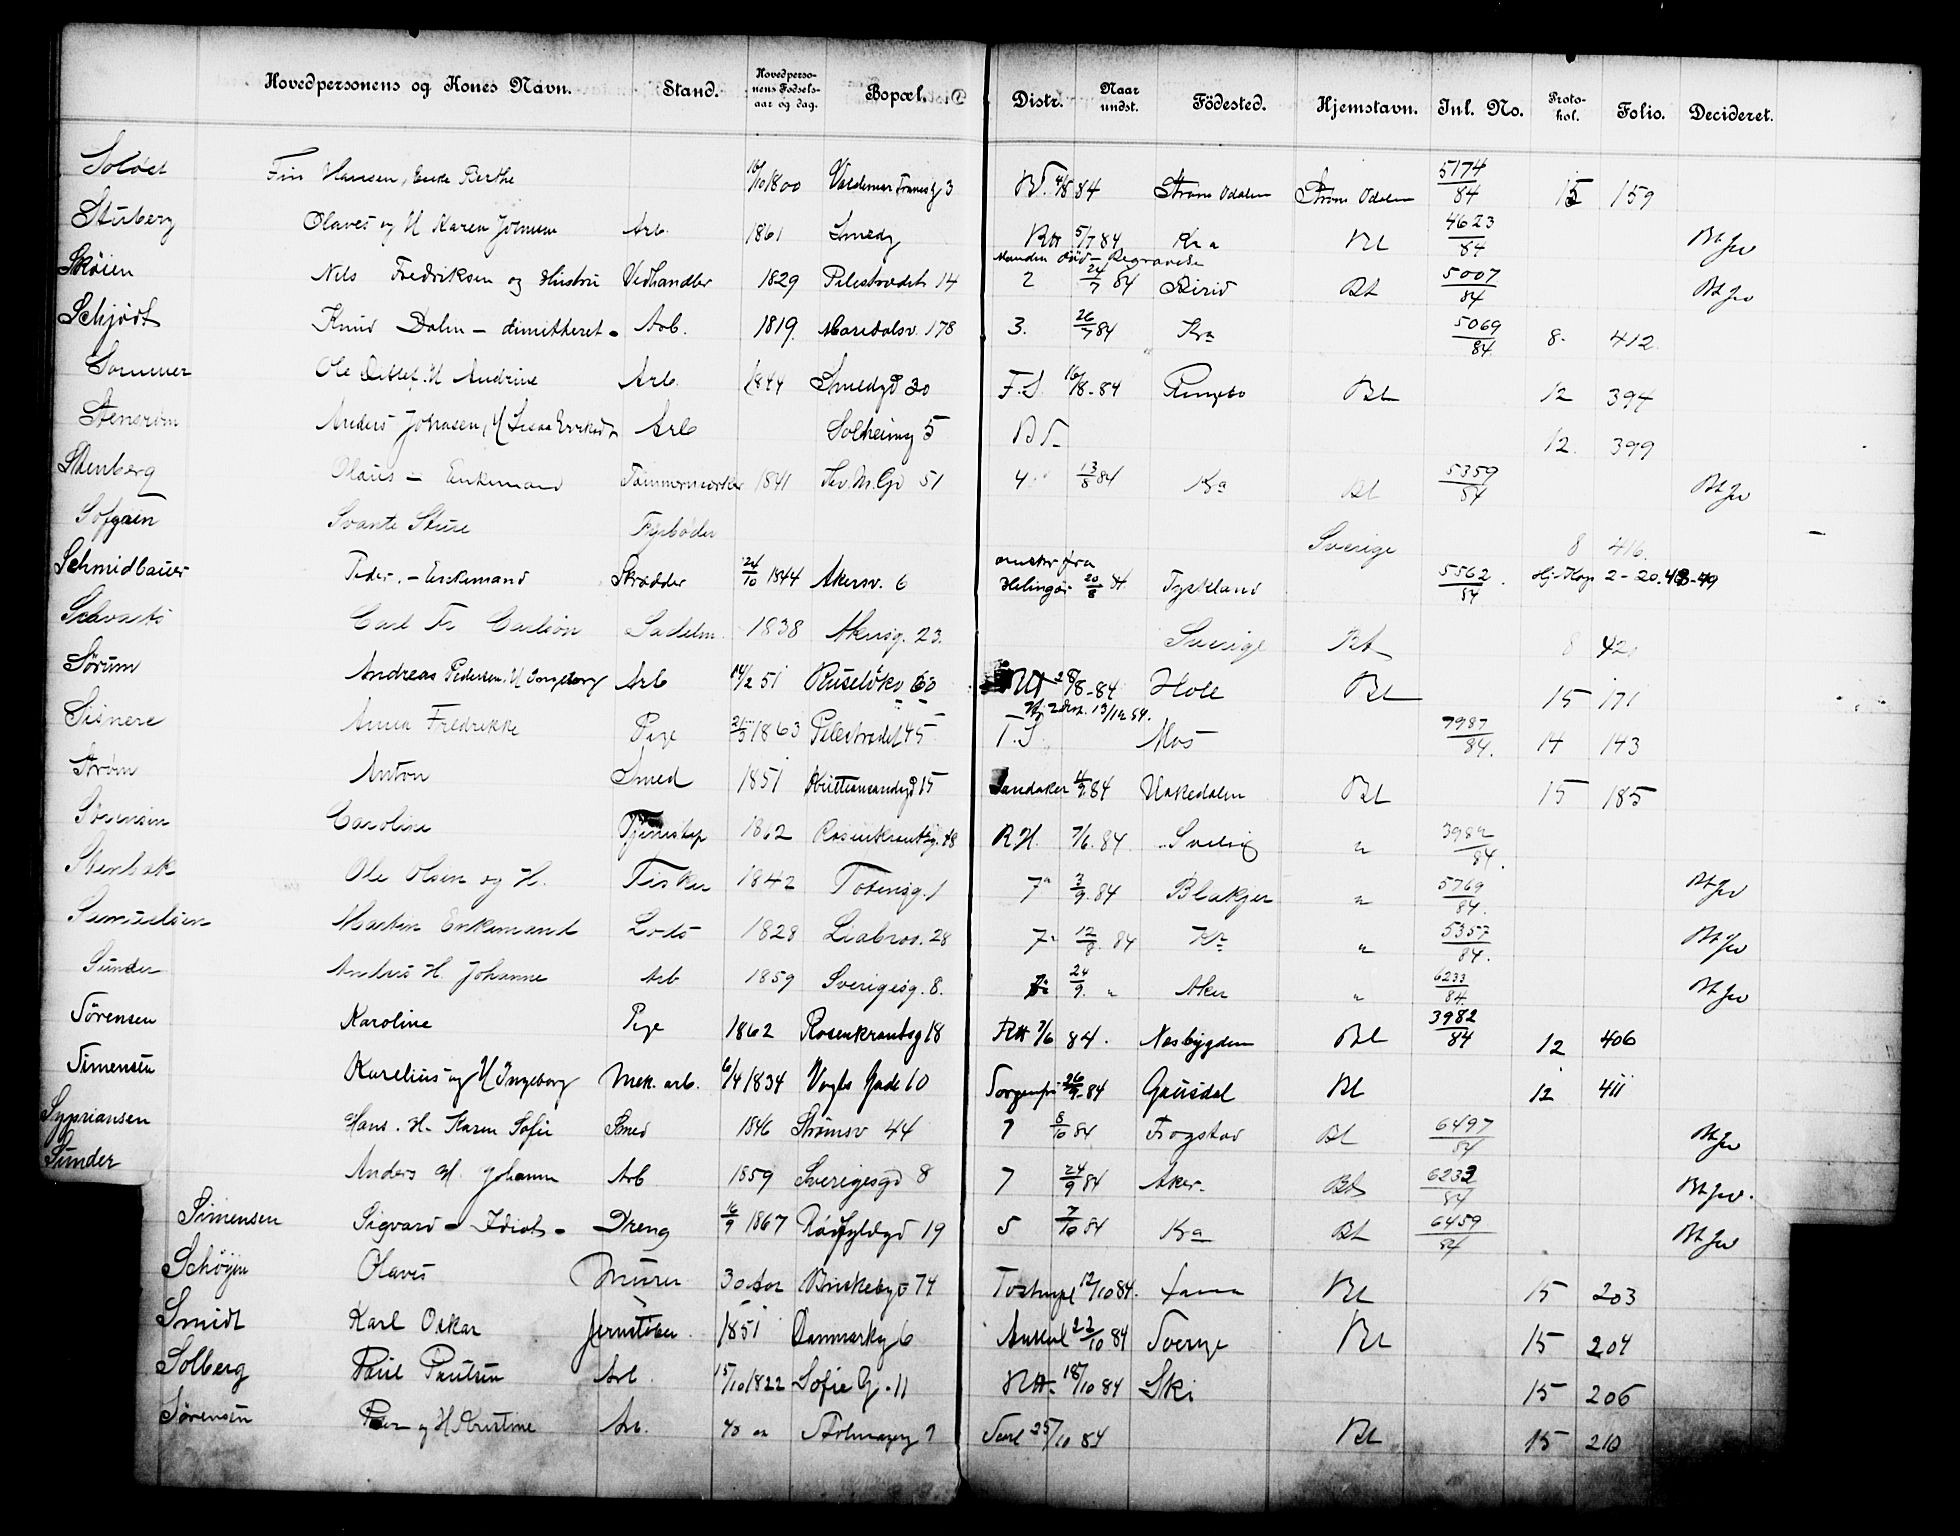 Hovedpersonens og Kones Navn. Stand. Hovedpersonens Fødselsaar og dag. Bopæl. Distr. Naar undst. Födested. Hjemstavn. Inl. No. Protokol. Folio. Decideret.
Soløet Finn Hansen, Enke Berthe 16/10 1800 3 84 Strøms Odalen Strøms Odalen 5174/84 15 159
Stuberg Olaves og H Karen Arb. 1861 Smedg RH 5/7 84 Kra Bt 4623/84 Bt Jw
Manden død - Begravede
Skøien Nels Fredriksen og Hustru Vedhandler 1829 Pilestrædet 14 2 24/7 84 Birid Bt 5007/84 Bt Jw
Schjødt Knud Dahn - dimitteret - Arb. 1819. Maridalsv. 178 3. 26/7 84 Kra 5069/84 8. 412.
Sommer Ole Detlef. H Andrine Arb. 1844 Smedgd 30 F. S. 16/8-84 Ringebo Bt 12 394
Stenstrøm Anders Johnsen, H Arb Solheimg 5 12. 399
Stenberg Olaus - Enkemand Tømmermærker 1841 51 4 13/8 84 Kra Bt 5359/84 Bt Jw
Sofgren Svante Sture Fyrbøder Sverige 8 416.
Schmidbauer Peder. - Enkemand Skrædder 24/10 1844 Akersv. 6 Helingør 20/8 Tyskland 5562/84 2-20.
Schwartz Carl Fr Carlson Sadelm. 1838 Akersg. 23. Sverige Bt 8 42
Sørum Andreas Pedersen, H Ingeborg Arb 14/2 51 Ruseløkv 60 28/8-84 Hole Bt 15 171
Sisnere Anna Fredrikke Pige 21/3 1863 Pilestrædet 45 T. S. Mos 7987/84. 14 143
Strøm Anton Smed 1851 Kristiansandgd 15 Sandaker 4/9 84 Hakedalen Bt 15 185
Sørensen Caroline Tjenestep 1862 Rosenkrantzg. 48 R.H. 7/6. 84 Sverig " 3982/84.
Stenbak Ole Olsen og H. Fisker 1842 Totensg. 1 7a 3/9. 84 Blakjer " 5769/84. Bt Jw
Samuelsen Martin Enkemand Lods 1828 Liabros. 28 7a 12/8. 84 Kr " 5357/84. Bt Jw
Sunder Anders H. Johanne Arb 1859 Sverigesg. 8. 24/9. " Aker " 6233/84. Bt Jw
Sørensen Karoline Pige 1862 Rosenkrantsg 18 RH 7/6 84. Nesbygden Bt 3982/84 12 406
Simensen Karelius og H Ingeborg Mek. arb. 6/4 1834 Vogts Gade 10 Sorgenfri 26/9-84 Gausdal Bt 12 411
Sypriansen Hans. H. Karen Sofie Smed 1846 Strømsv 44 7 8/10 84 Frogstad Bt 6497/84 Bt Jw
Sunder Anders H. Johanne Arb 1859 Sverigesgd 8 7 24/9 84 Aker. Bt 6233/84 Bt Jw.
Simensen Sigvard - Idiot - Dreng 16/9 1867 19 5 7/10 84 Kra Bt 6459/84 Bt Jw
Schøyen Olaves Murer 30 Aar Briskebygd 74 12/10 84. Bt 15 203
Smidt Karl Oskar Jernstøber 1851 Danmarksg 6 22/10 84 Sverige Bt 15 204
Solberg Paul Paulsen Arb. 15/10 1822 Sofie G. 11 18/10 84 Ski 15 206
Sørensen Peer og H Kristine Arb. 40 25/10 84 Bt 15 210